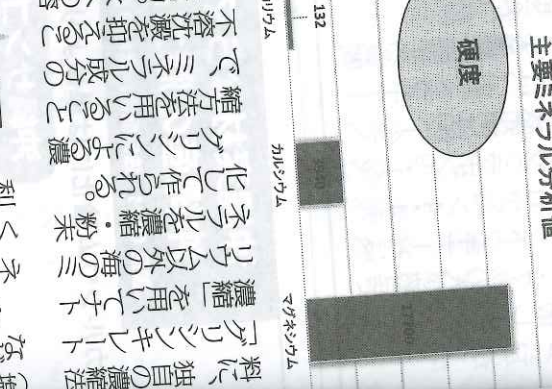 主要ミネラル分析値
硬度
132
リウム
カルシウム
マグネシウム
17700
料に、独自の濃縮法
「グリシンキレート
濃縮」を用いてナト
リウム以外の海のミ
ネラルを濃縮・粉末
化して作られる。
グリシンによる濃
縮方法を用いること
で、ミネラル成分の
不溶沈澱を抑えるこ